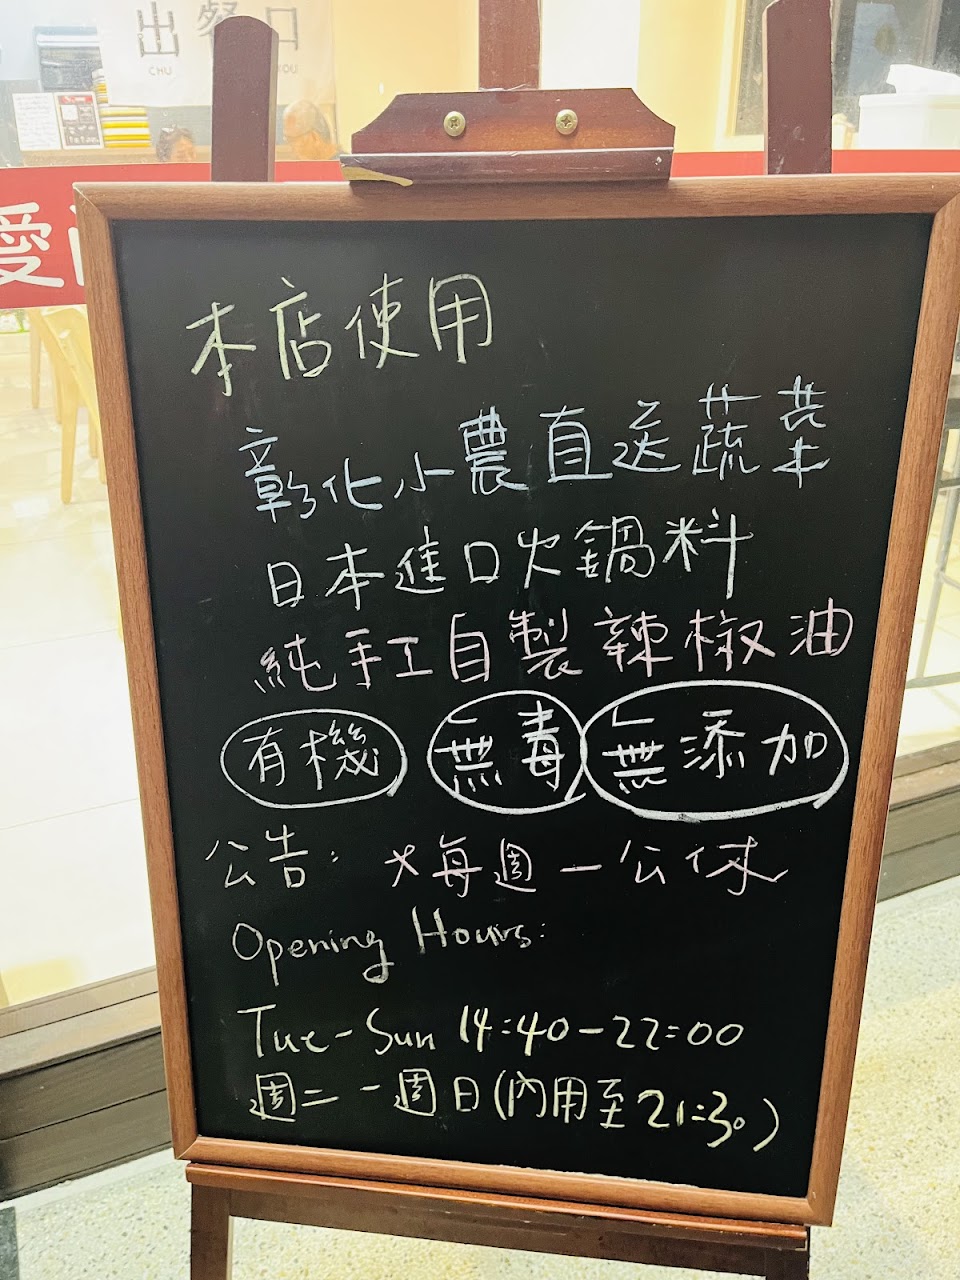 出餐口
CHU
本店使用
彰化小農直送蔬菜
日本進口火鍋料
純手工自製辣椒油
有機 無毒 無添加
公告: *每週一公休
Opening Hours:
Tue-Sun 14:40-22:00
週二-週日(內用至21:30)